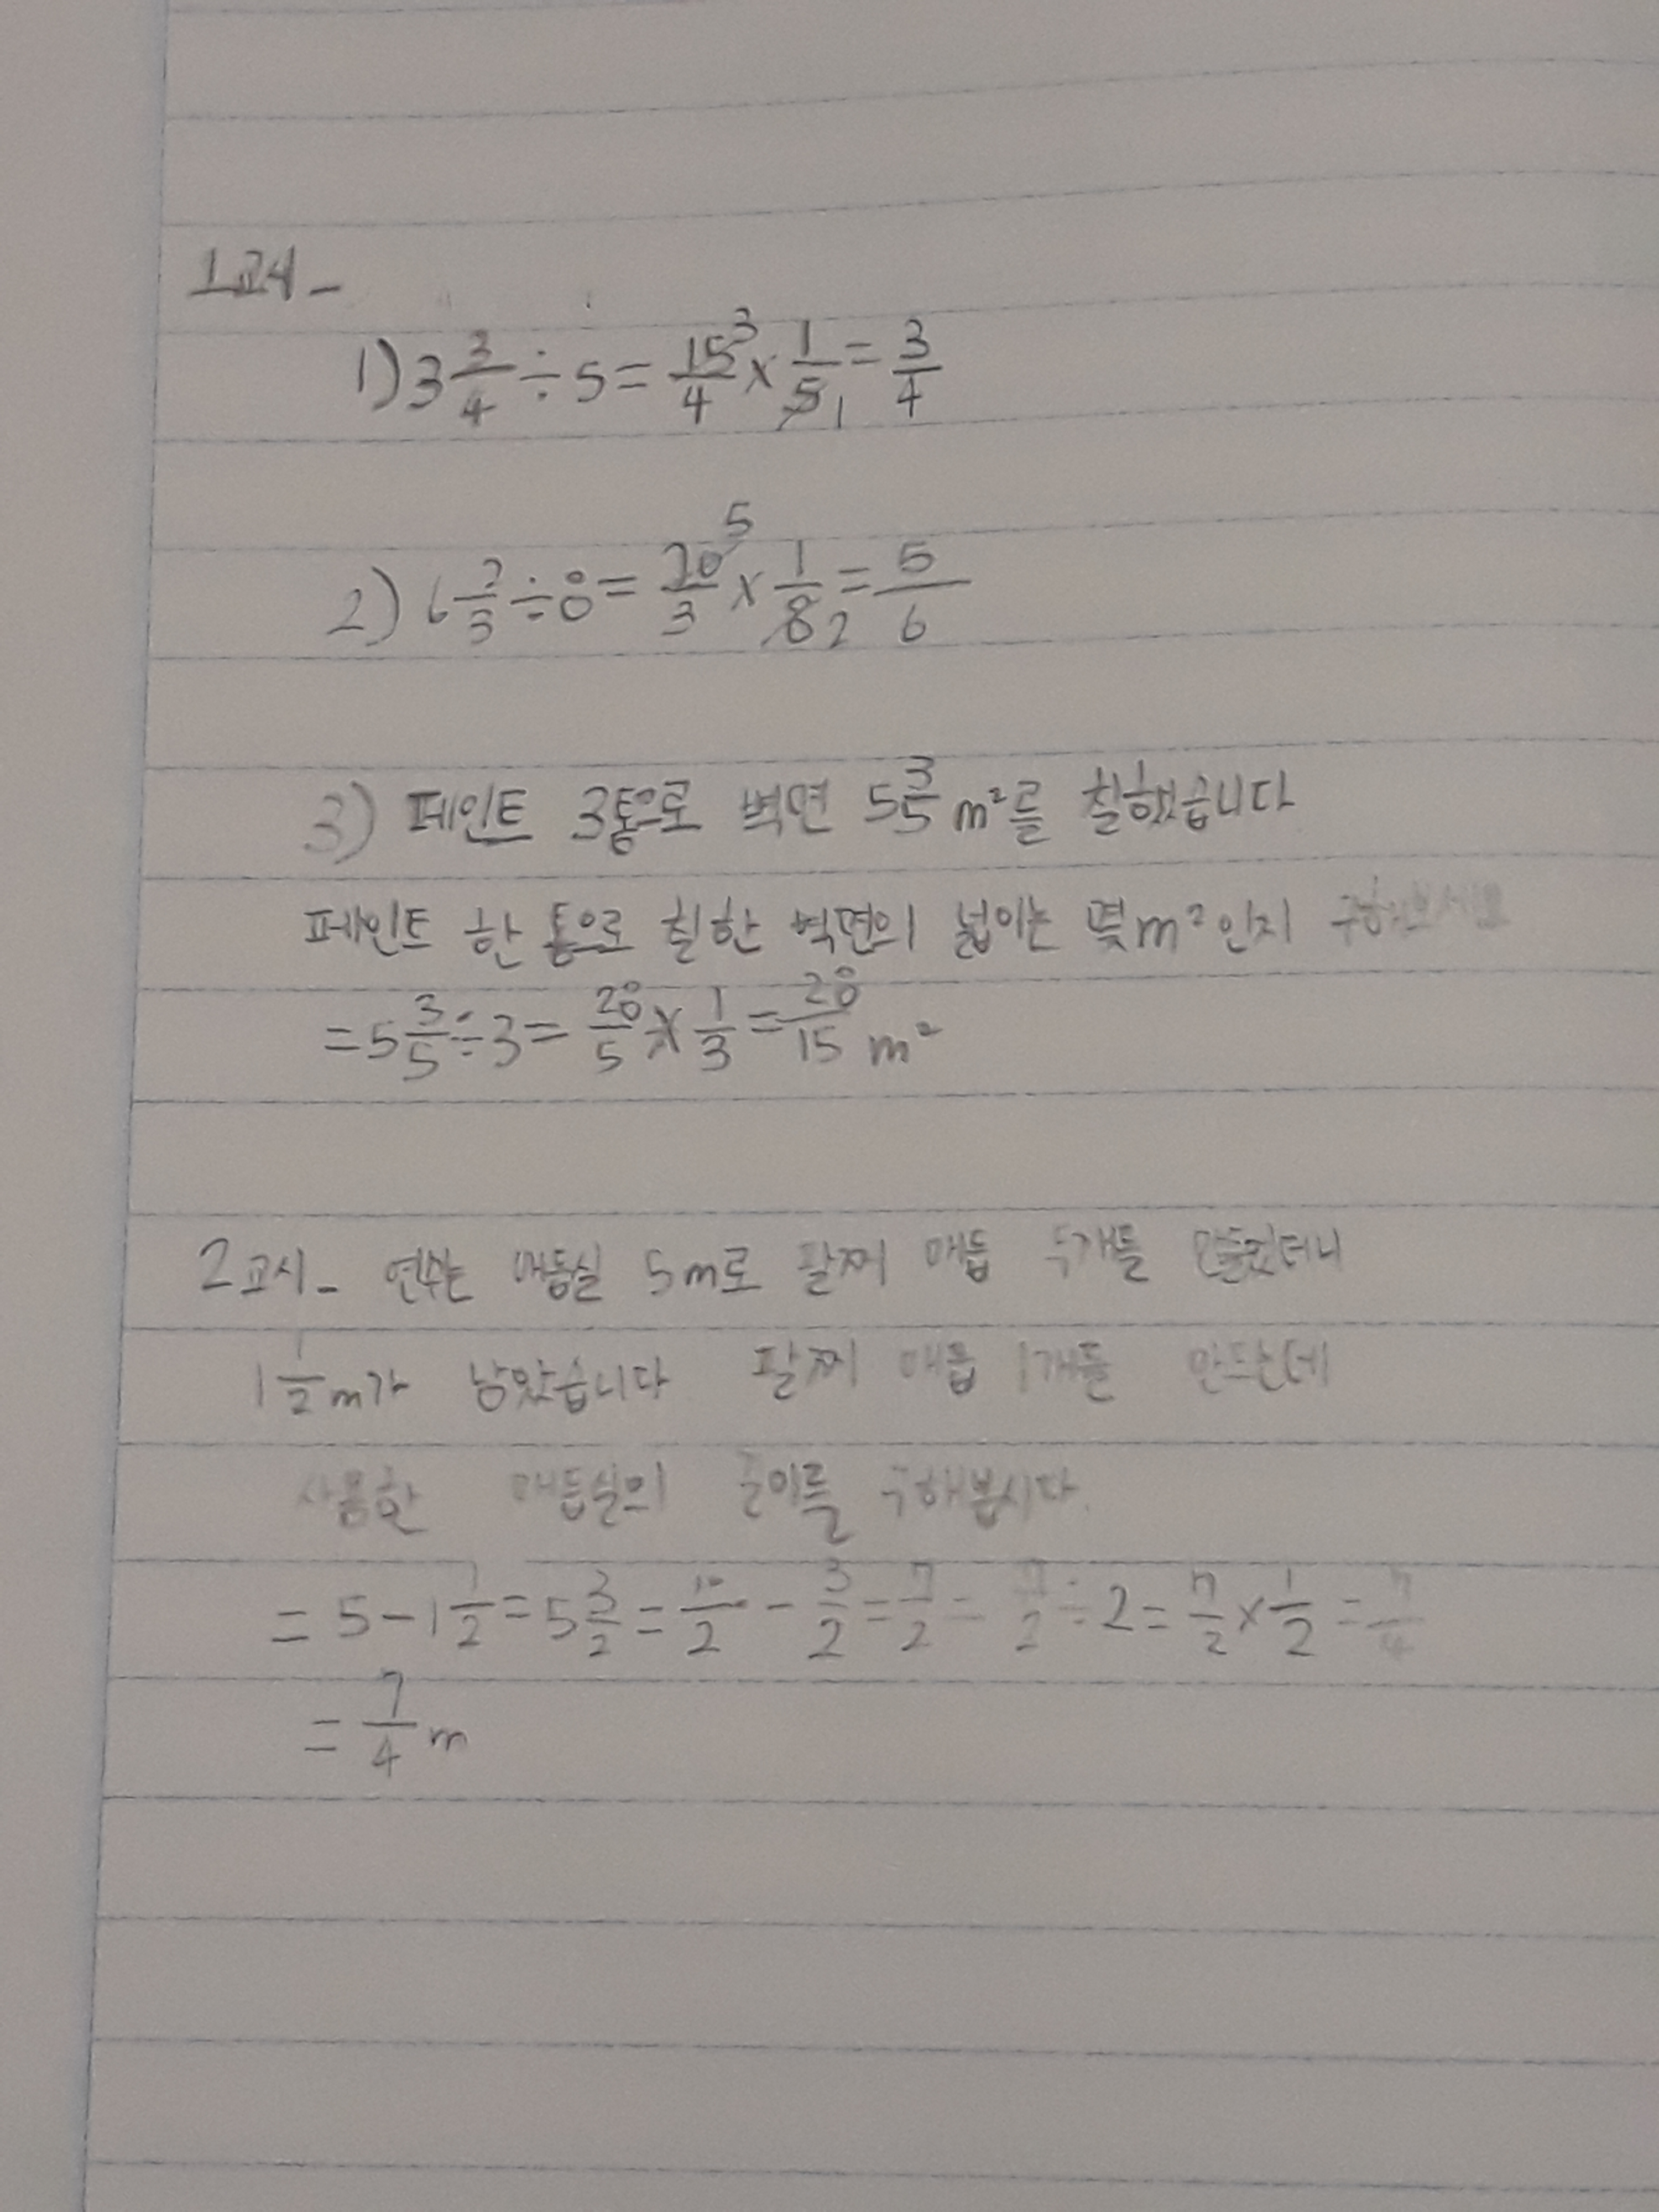 1교시-
1) 3 3/4 ÷ 5 = 15/4 3 × 1/5 1 = 3/4
2) 6 2/3 ÷ 8 = 20/3 5 × 1/8 2 = 5/6
3) 페인트 3통으로 벽면 5 3/5 m²를 칠했습니다
페인트 한 통으로 칠한 벽면의 넓이는 몇 m² 인지 구해보세요
= 5 3/5 ÷ 3 = 28/5 × 1/3 = 28/15 m²
2교시- 연수는 매듭실 5m로 팔찌 매듭 두개를 만들었더니
1 1/2 m가 남았습니다 팔찌 매듭 1개를 만드는데
사용한 매듭실의 길이를 구해봅시다.
= 5 - 1 1/2 = 5 3/2 = 10/2 - 3/2 = 7/2 = 7/2 ÷ 2 = 7/2 × 1/2 = 7/4
= 7/4 m